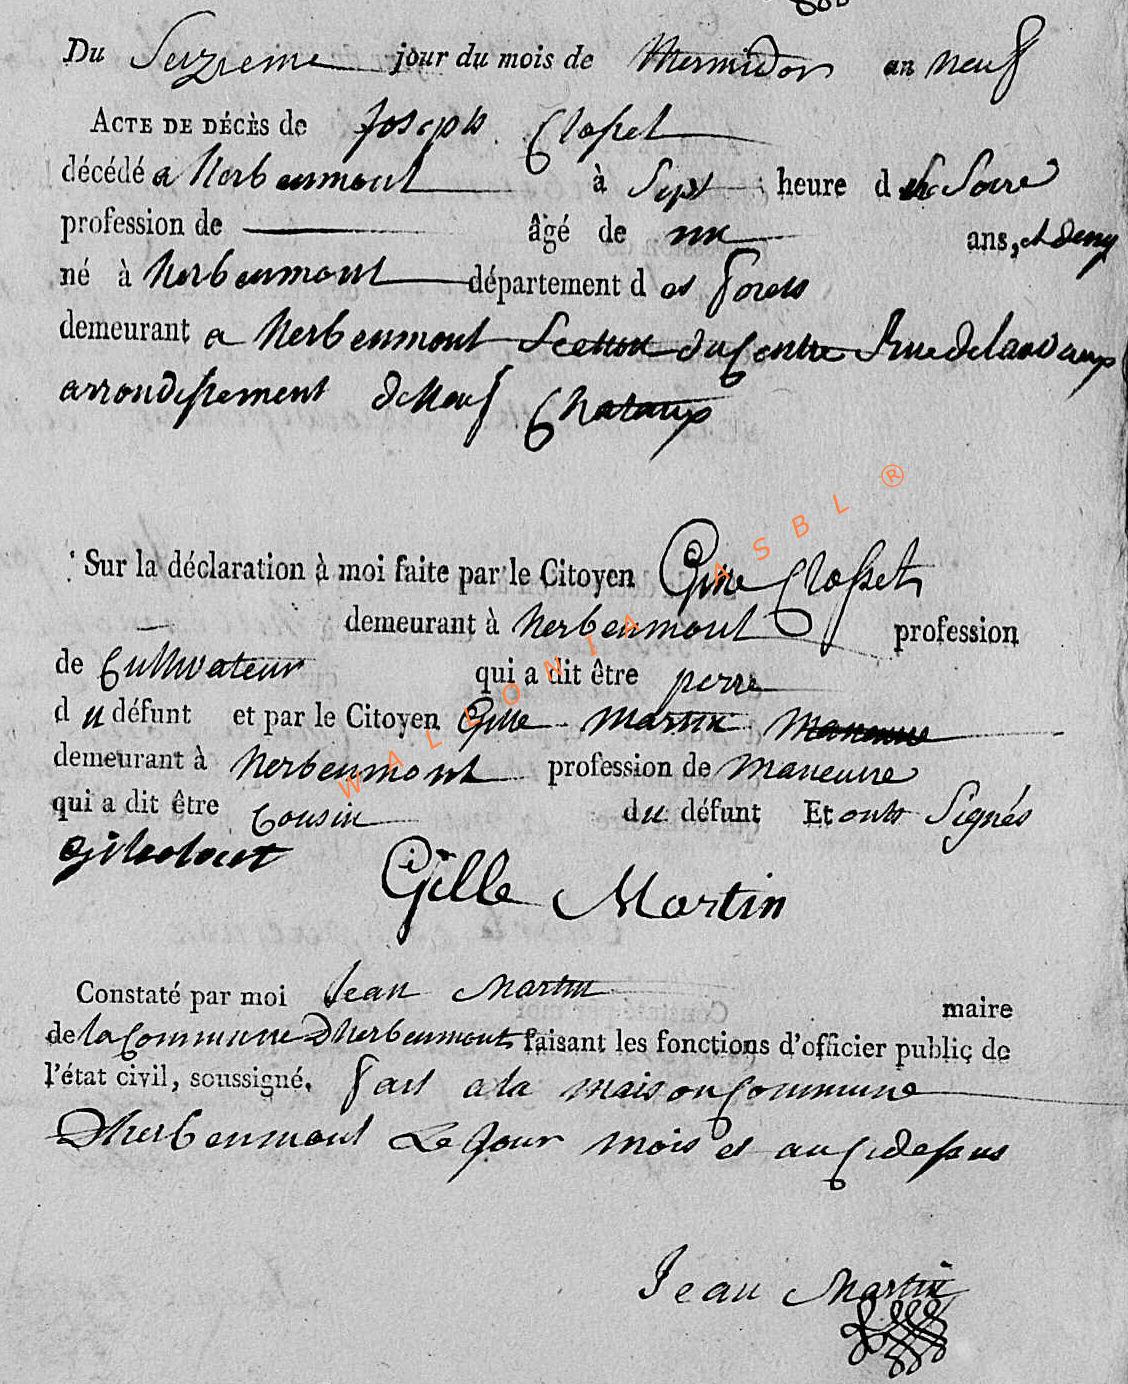 Du Seizieme jour du mois de Thermidor an neuf
ACTE DE DÉCÈS de Joseph Closset
décédé a herbeumont à Sept heure d Soire
profession de âgé de un ans, et demy
né à herbeumont département d es forets
demeurant a herbeumont Section du Centre Rue de
arrondissement de Neuf Chataux
Sur la déclaration à moi faite par le Citoyen Gille Closset
demeurant à herbeumont profession
de Cultivateur qui a dit être perre
d u défunt et par le Citoyen Gille Martin
demeurant à herbeumont profession de maneuvre
qui a dit être Cousin du défunt Et onts Signés
Gille Martin
Constaté par moi Jean Martin maire
de la Commune Dherbeumont faisant les fonctions d'officier public de
l'état civil, soussigné. fait a la maison Commune
Dherbeumont Le Jour mois et an Cidessus
Jean Martin
WALLONIA ASBL ®